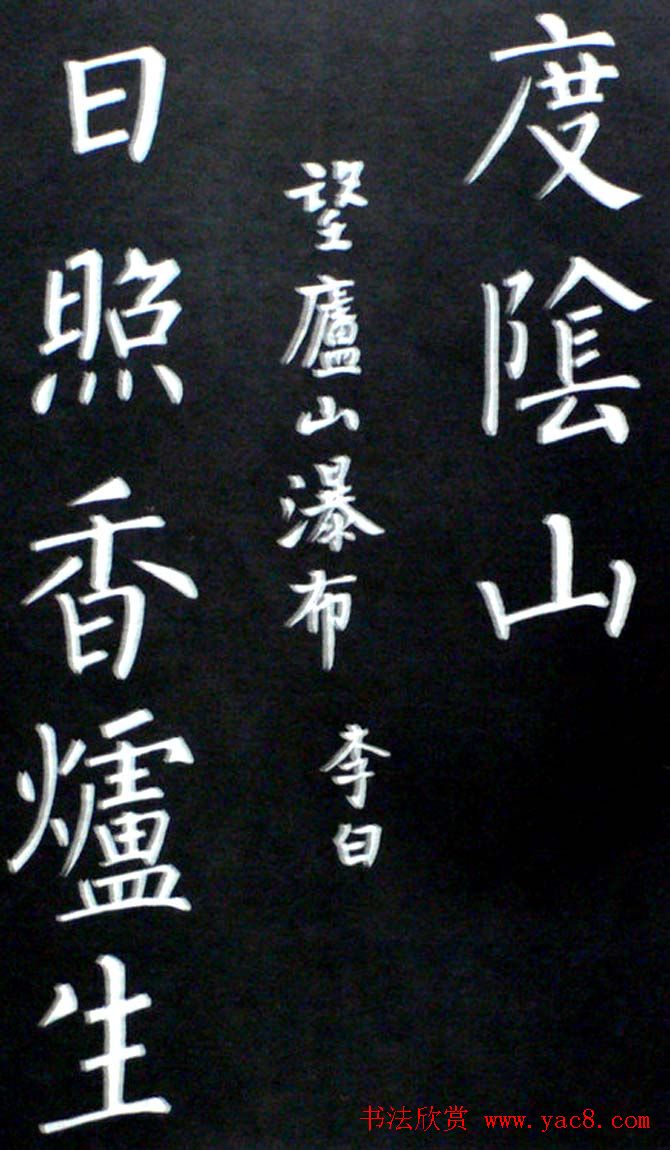 度陰山
望廬山瀑布 李白
日照香爐生
书法欣赏 www.yac8.com